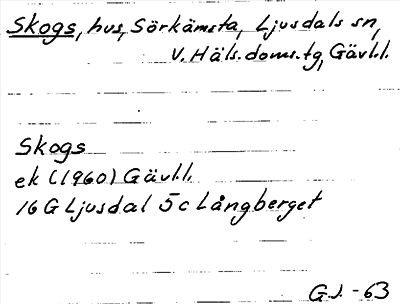 Skogs, hus, Sörkämsta, Ljusdals sn,
V. Häls. doms. tg, Gävl.l.
Skogs
ek (1960) Gävl.l.
16 G Ljusdal 5c Långberget
G.J. -63